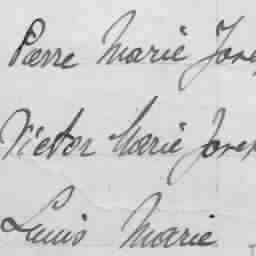 Pierre Marie Jose
Victor Marie Josep
Louis Marie